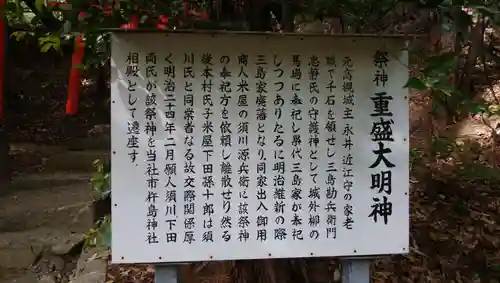 祭神 重盛大明神
元高槻城主永井近江守の家老
職で千石を領せし三島勘兵衛
忠磐氏の守護神として城外柳の
馬場に奉祀し累代三島家が奉祀
しつつありたるに明治維新の際
三島家廃藩となり同家出入御用
商人米屋の須川源兵衛に該祭神
の奉祀方を依頼し離散せり然る
後本村氏子米屋下田孫十郎は須
川氏と同業者なる故交際関係厚
く明治二十四年二月願人須川下田
両氏が該祭神を当社市杵島神社
相殿として遷座す。